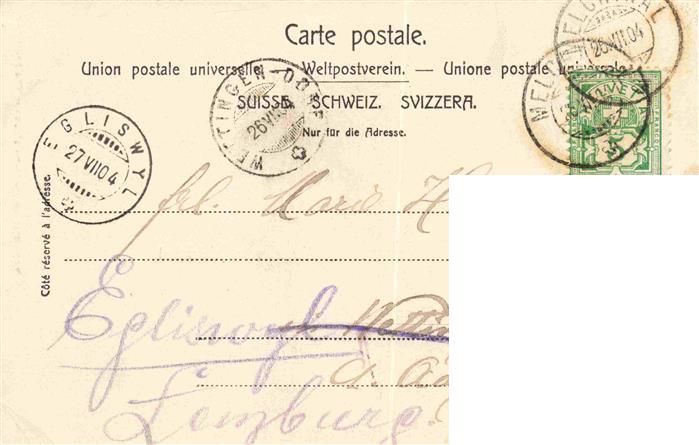 Carte postale.
Union postale universelle. — Weltpostverein. — Unione postale universale
SUISSE. SCHWEIZ. SVIZZERA.
Nur für die Adresse.
Côté réservé à l'adresse.
EGLISWYL
27 VII 04
WETTINGEN-DORF
26 VII 04
MELCHTHAL
26 VII 04
HELVETIA
FRANCO
frl. Marie H
Egliswyl
Lenzburg.